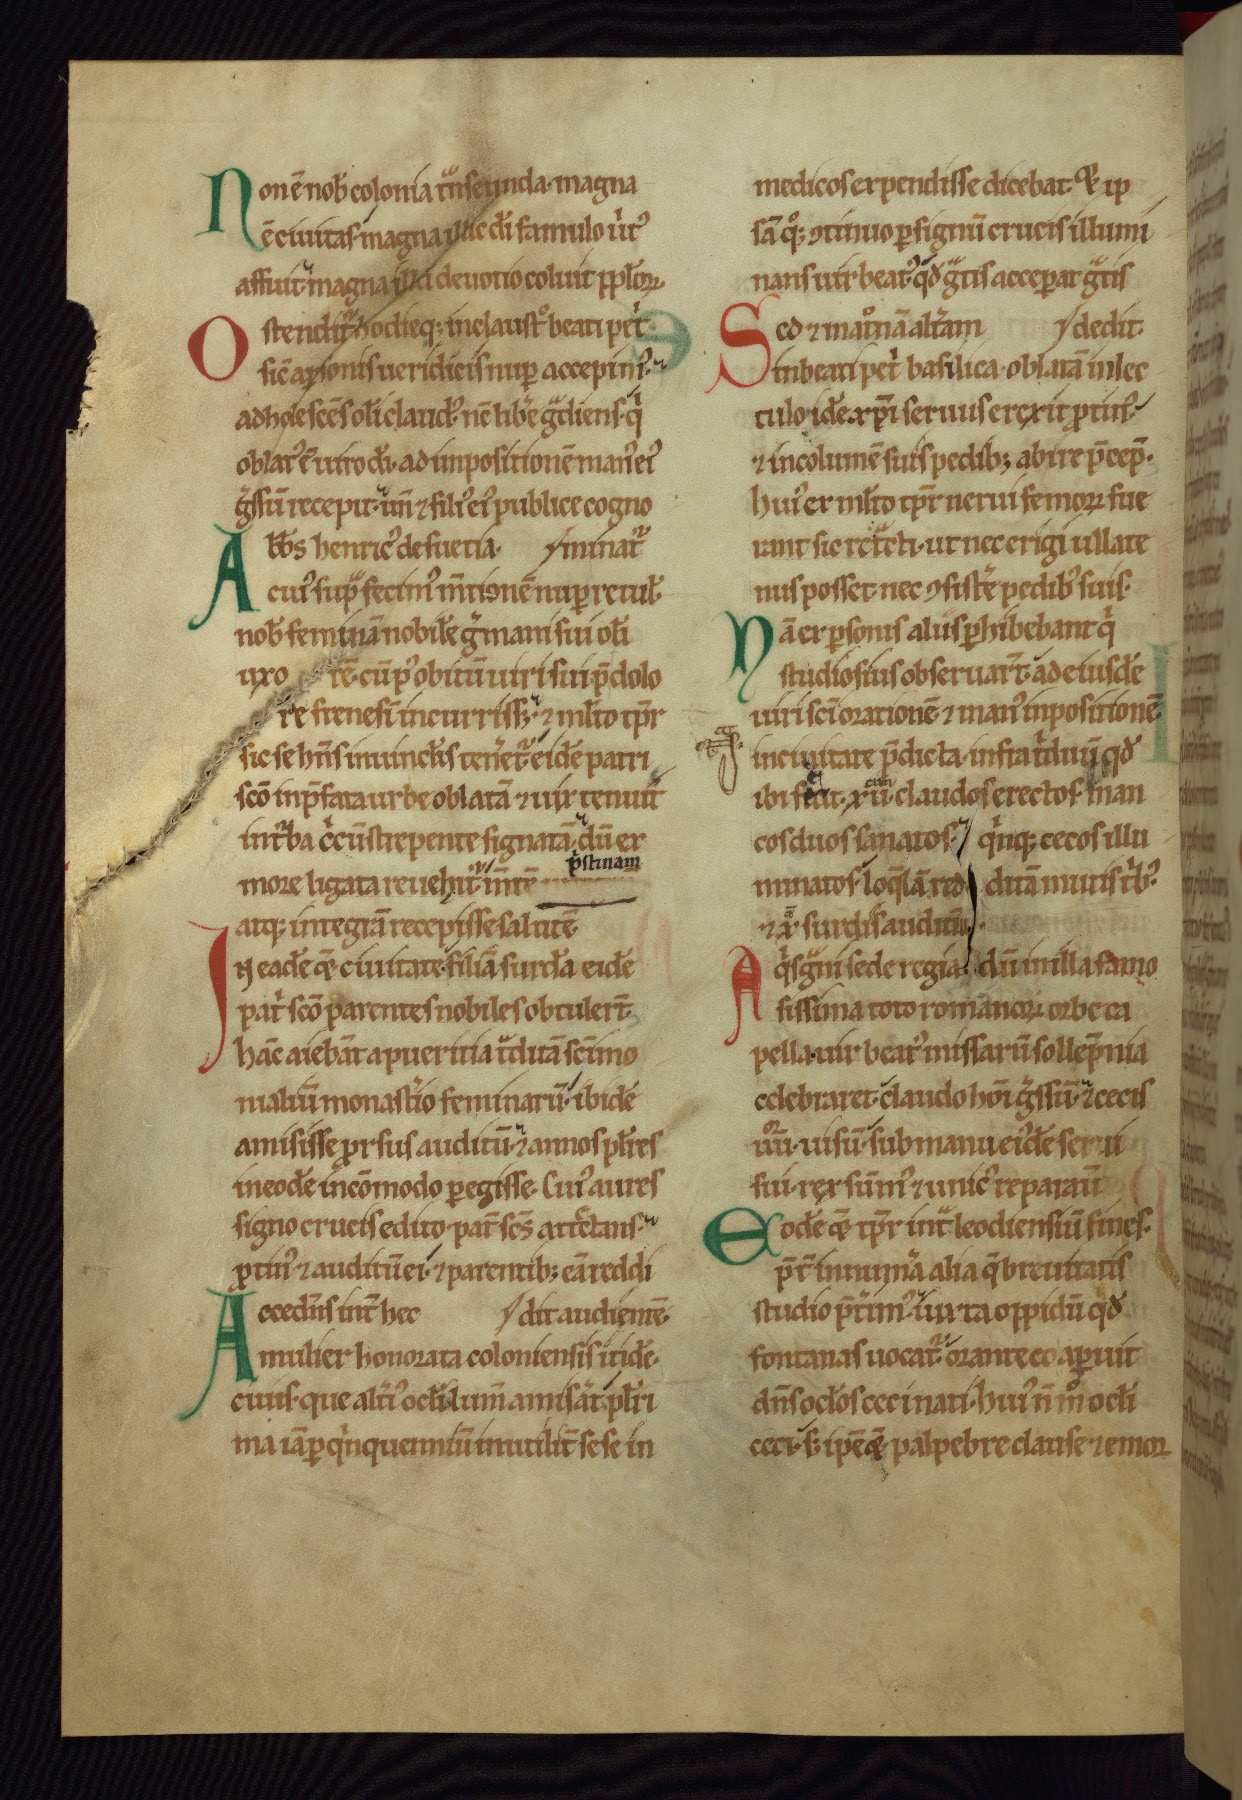 Non ē nob̄ colonia tn̄ seunda· magna
ē ciuitas magna di famulo
affuit· magna illa deuotio coluit
Ostendit᷑ hodieq; in claustᵒ beati pet
sic̄ a ꝑsonis ueridicis nuꝑ accepim᷒·
adholescēs oli claud᷒·
oblat᷒ ē uiro di· ad impositionē man᷒ ei᷒
gssū recepit· un̄ ⁊ fili᷒ ei᷒ publice cogno
Abb̄s henric᷒ de suetia· minat᷑
cui᷒ sup̄ fecim᷒ mtionē nuꝑ retul·
nob̄ feminā nobile germani sui oli
uxo rē· cū p᷒ obitū uiri sui p̄ dolo
re frenesī incurriss;· ⁊ mlto tpr̄
sic se hn̄s in uinclis tenēt᷑· eidē patri
scō in p̄fata urbe oblatā· ⁊ uix tenuit
int᷑ba ccūstrepente signatā· dū ex
more ligata reuehit᷑· mtē p̄stinam
atq; integrā recepisse salutē
In eadē qͦ ciuitate· filiā surdā eidē
pat scō parentes nobiles obtulert̄
hāc aiebāt a pueritia tditā sctimo
nialiū monastio feminarū· ibidē
amisisse prorsus auditū· ⁊ annos plres
in eodē incōmodo ꝑegisse· Cui᷒ aures
signo crucis edito· pat̄ scs̄ attctans·
ꝓtin᷒ ⁊ auditū ei· ⁊ parentib; eā reddi
Accedn̄s int̄ hec dit audientē·
mulier honorata coloniensis itidē·
cuius· que alti᷒ ocli lum̄ amisat· plri
ma iā ꝑ qinquenniū inutilit̄ sese in
medicos expendisse dicebat· ip
sā q;· ꝯtinuo ꝑ signū crucis illumi
nans uir beat᷒· qd gtis acceꝑat gtis
Sed ⁊ matnā altam dedit·
in beati pet basilica· oblatā in lec
tulo idē xp̄i seruus erexit ꝓtin᷒·
⁊ incolumē suis pedib; abire p̄cep̄·
hui᷒ ex mlto tpr̄ nerui femorꝝ fue
rant sic tcti· ut nec erigi ullate
nus posset· nec ꝯsistē pedib᷒ suis·
Nā ex ꝑsonis aliis ꝑhibebant q
studiosius obseruart̄· ad eiusdē
uiri scī orationē· ⁊ man᷒ inpositionē
in ciuitate p̄dicta· infra tduū qd
ibi fecit· xii cum· claudos erectos· man
cos duos sanatos· qnq; cecos illu
minatos· loqlā red ditā mutis tb᷒·
⁊ surdis auditū·
Aqsgni sede regia· dū in illa famo
sissima toto romanorꝝ orbe ca
pella· uir beat᷒ missarū sollēpnia
celebraret· claudo hoi gssū· ⁊ cecis
uisū· sub manu ei᷒dē serui
sui· rex sūm᷒ ⁊ unic᷒ reparauit
Eodē qͦ tpr̄ int̄ leodiensiū fines·
p̄t̄ innumā alia q breuitatis
studio p̄tim᷒· iuxta oppidū qd
fontanas uocat᷑· orante eo aꝑuit
dn̄s oclos ceci nati· hui᷒ n̄ mᵒ ocli
ceci· s; ip̄e palpebre clause ⁊ emor